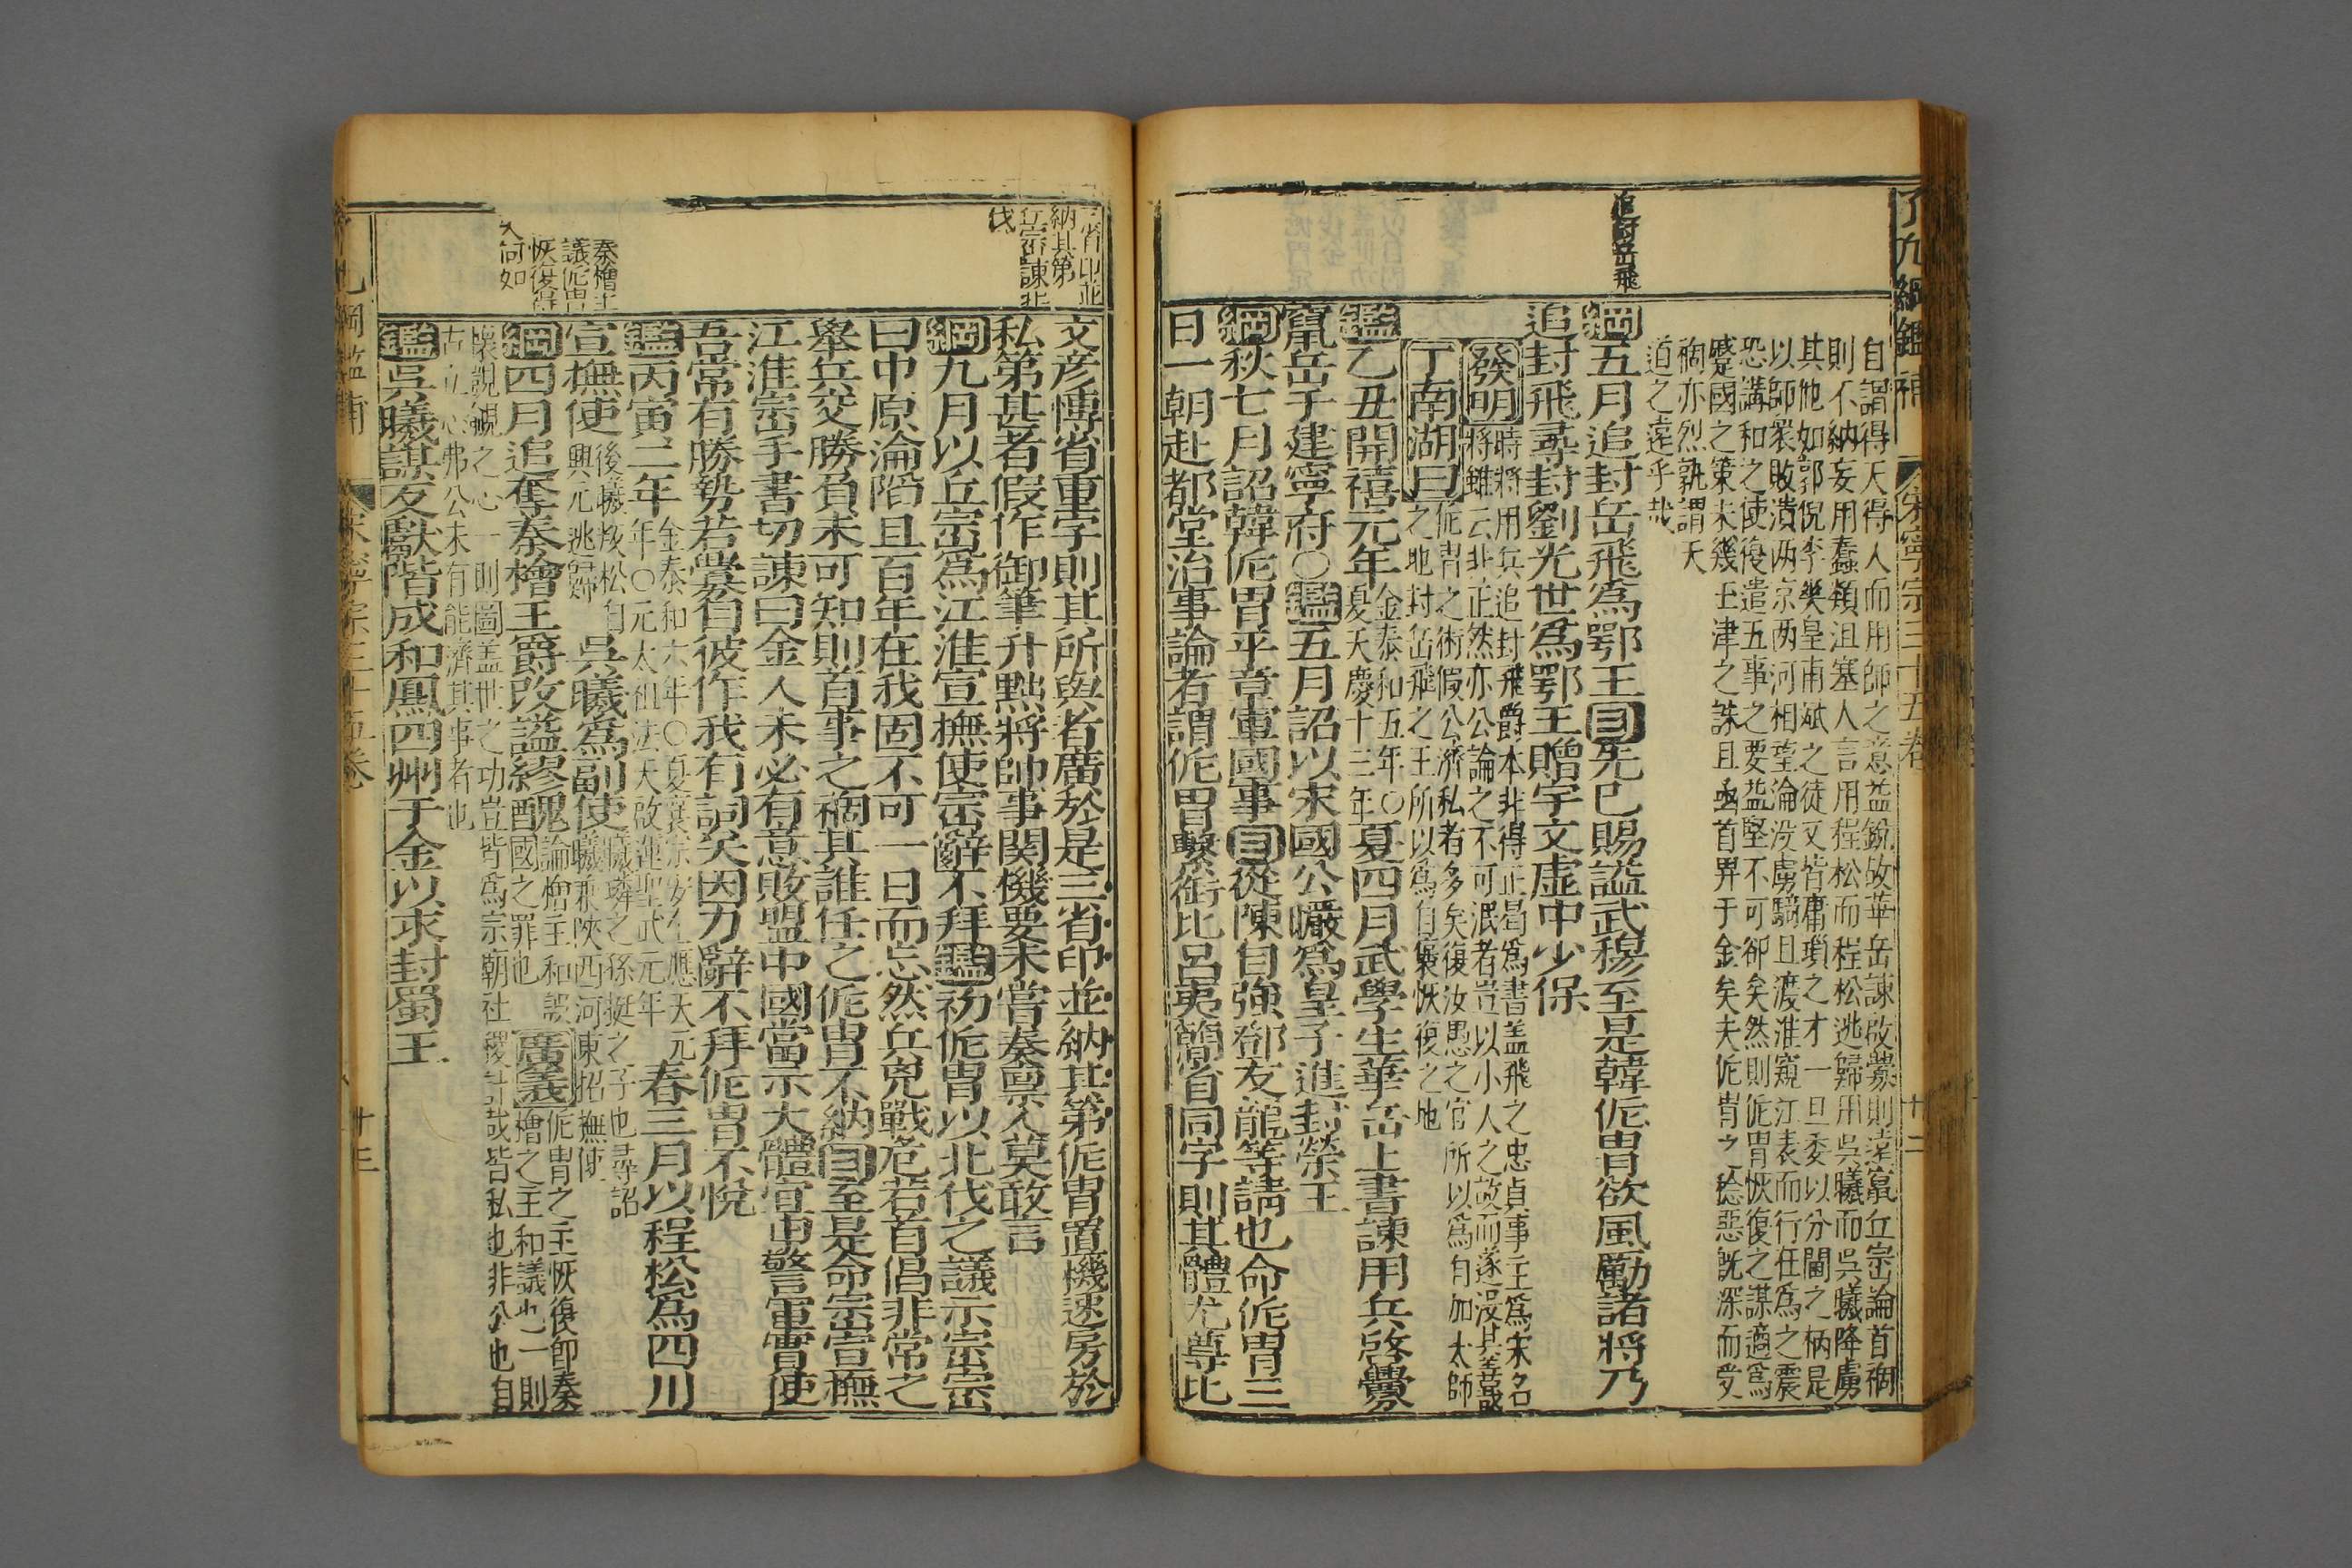 了凡綱鑑補
宋寧宗三十五卷
廿二
追封岳飛
自謂得天得人而用師之意益銳故華岳諫啟釁則遠竄丘崈論首禍
則不納妄用蠢類沮塞人言用程松而程松逃歸用吳曦而吳曦降虜
其他如郭倪李爽皇甫斌之徒又皆庸瑣之才一旦委以分閫之柄是
以師衆敗潰两京两河相望淪没虜騎且渡淮窺江表而行在爲之震
恐講和之使復遣五事之要益堅不可卻矣然則侂胄恢復之謀適爲
蹙國之策未幾玉津之誅且函首畀于金矣夫侂胄之稔惡旣深而受
禍亦烈孰謂天
道之遠乎哉
綱五月追封岳飛爲鄂王目先已賜謚武穆至是韓侂胄欲風勵諸將乃
追封飛尋封劉光世爲鄂王贈宇文虛中少保
發明時將用兵追封飛爵本非得正曷爲書盖飛之忠貞事王爲宋名
將雖云非正然亦公論之不可泯者豈以小人之故而遂没其善哉
丁南湖曰侂胄之術假公濟私者多矣復汝愚之官所以爲自加太師
之地封岳飛之王所以爲自奬恢復之地
鑑乙丑開禧元年金泰和五年〇夏天慶十三年夏四月武學生華岳上書諫用兵啓釁
竄岳于建寧府〇鑑五月詔以宋國公曮爲皇子進封榮王
綱秋七月詔韓侂胄平章軍國事目從陳自強鄧友龍等請也命侂胄三
日一朝赴都堂治事論者謂侂胄繫銜比呂夷簡省同字則其體尤尊比
三省印並
納其第
丘崈諫北
伐
秦檜主
議侂胄
恢復得
失何如
文彦博省重字則其所與者廣於是三省印並納其第侂胄置機速房於
私第甚者假作御筆升黜將帥事関機要未嘗奏稟人莫敢言
綱九月以丘崈爲江淮宣撫使崈辭不拜鑑初侂胄以北伐之議示崈崈
曰中原淪陷且百年在我固不可一日而忘然兵兇戰危若首倡非常之
舉兵交勝負未可知則首事之禍其誰任之侂胄不納目至是命崈宣撫
江淮崈手書切諫曰金人未必有意敗盟中國當示大體宜申警軍實使
吾常有勝勢若釁自彼作我有詞矣因力辭不拜侂胄不悅
鑑丙寅二年金泰和六年〇夏襄宗安全應天元年〇元太祖法天啟運聖武元年春三月以程松爲四川
宣撫使後曦叛松自興元逃歸吳曦爲副使曦璘之孫挺之子也尋詔曦兼陜西河東招撫使
綱四月追奪秦檜王爵改謚繆醜論檜主和誤國之罪也廣義侂胄之主恢復即秦檜之主和議也一則
懷覬覦之心一則圖盖世之功豈皆爲宗朝社稷計哉皆私也非公也自
古立心弗公未有能濟其事者也
鑑吳曦謀反獻階成和鳳四州于金以求封蜀王
宋寧宗三十五卷
廿三